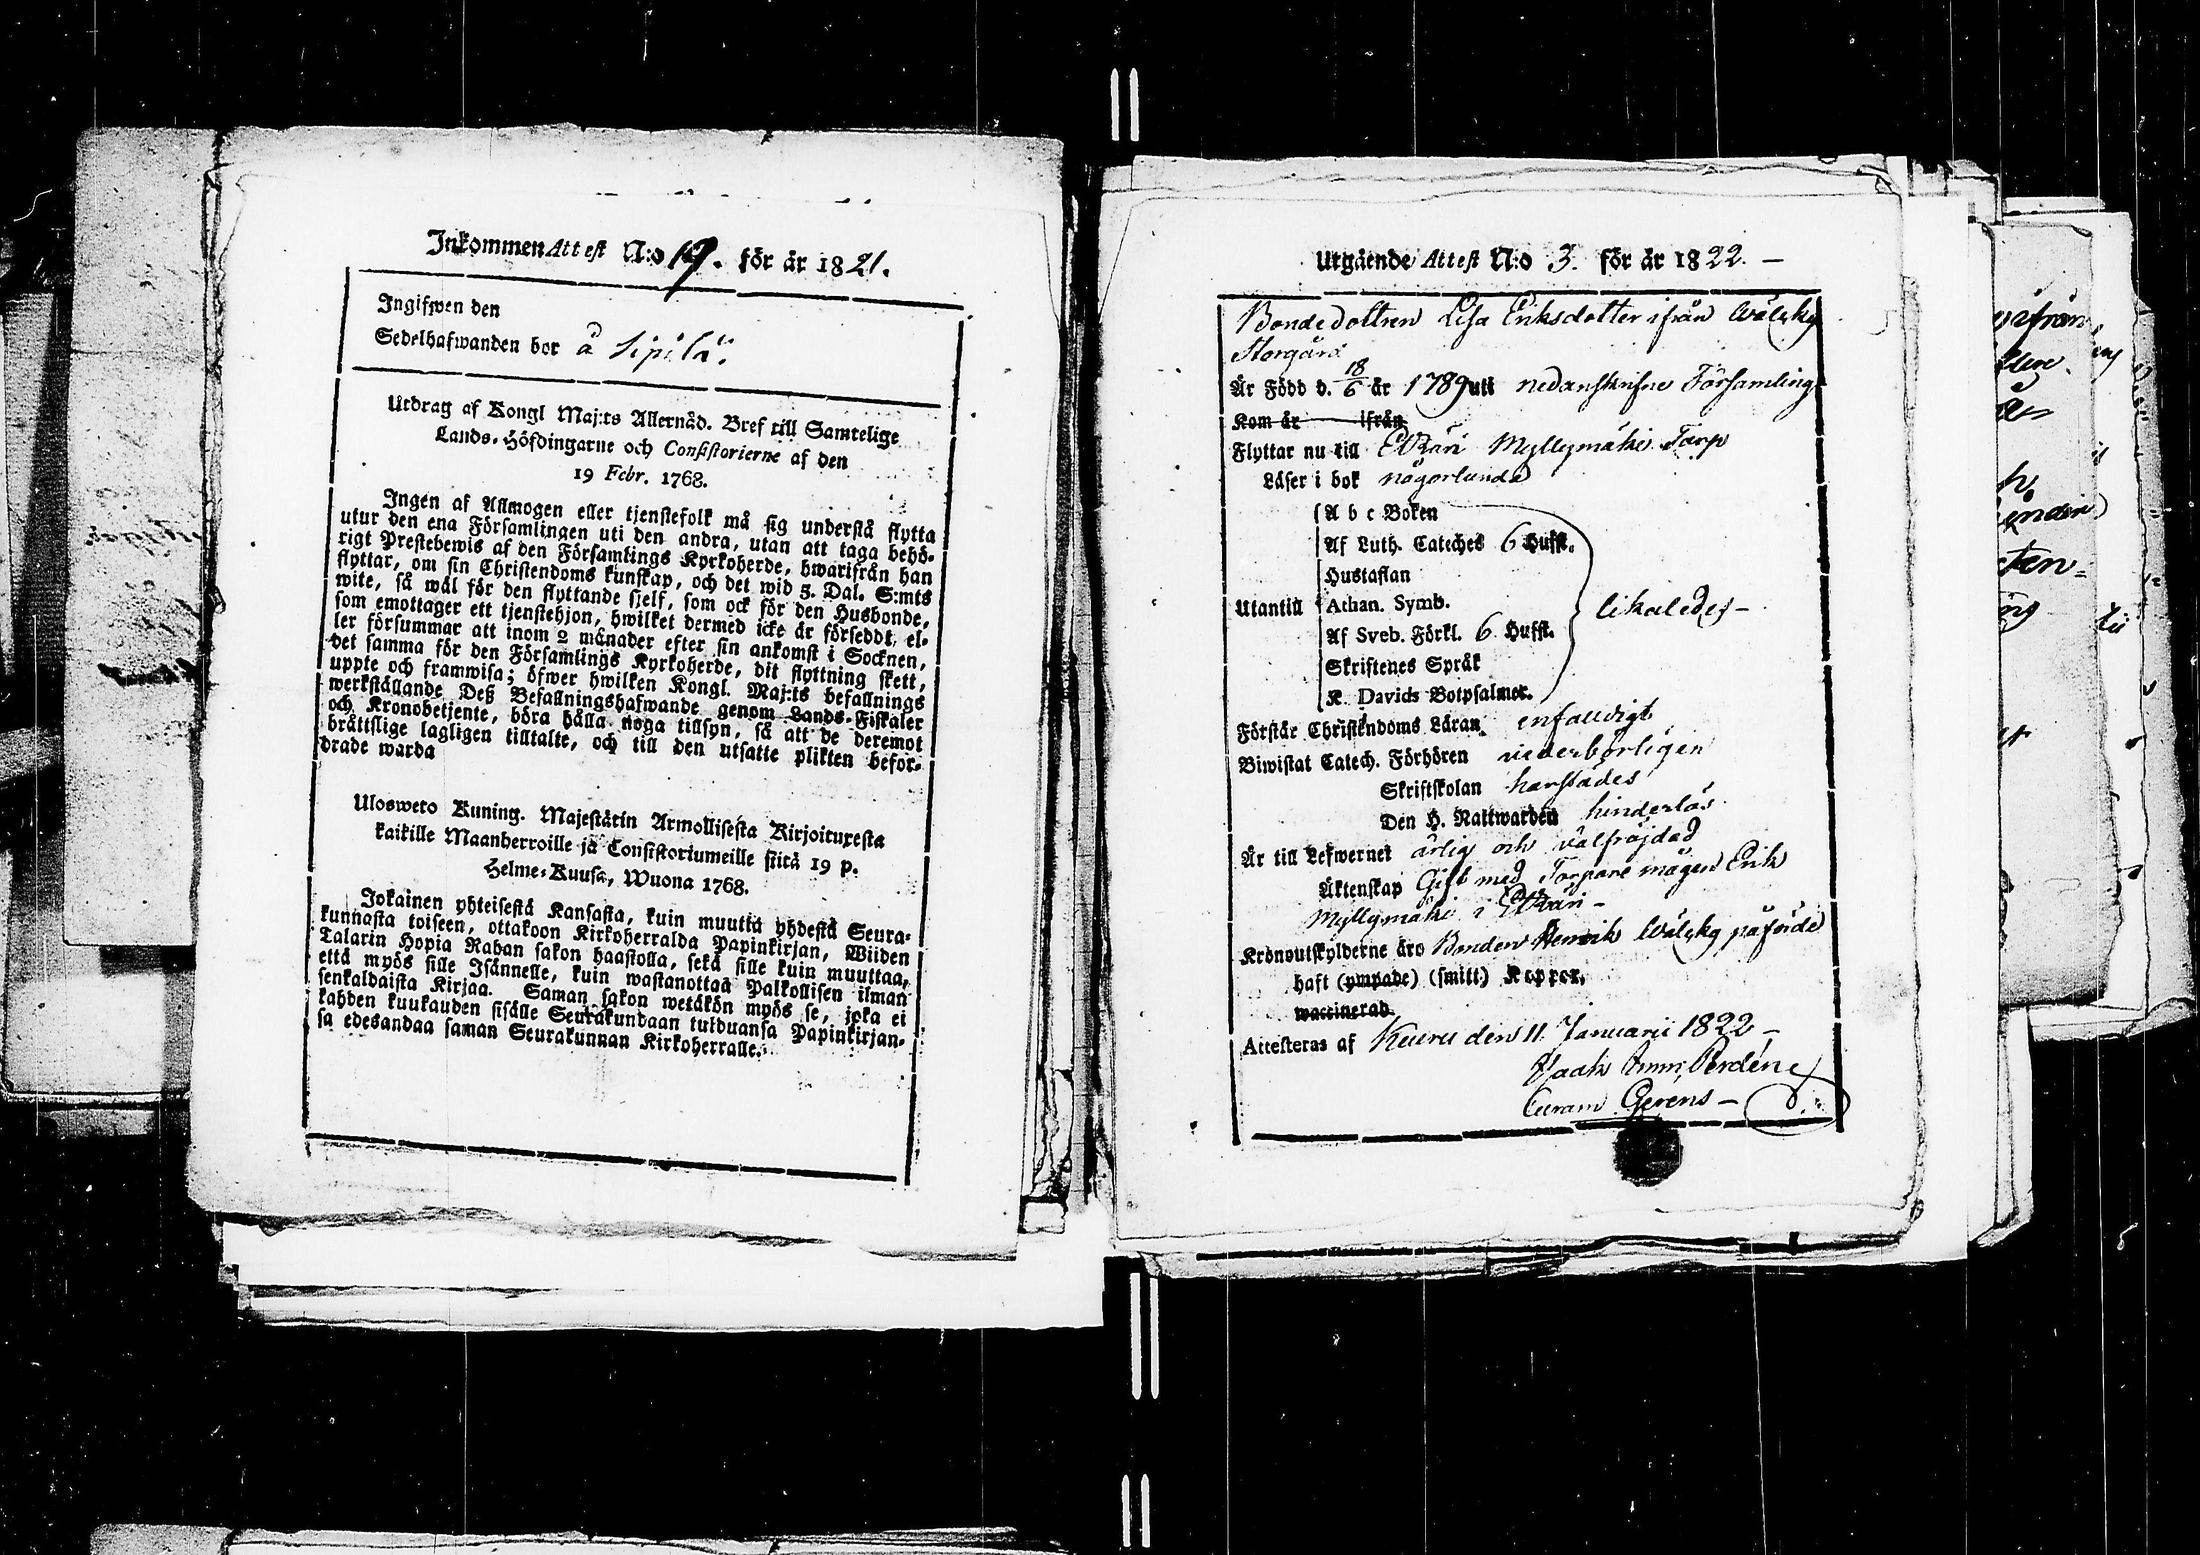 Inkommen Attest N:o 19. för år 1821.
Ingifwen den
Sedelhafwanden bor å Sipilä.
Utdrag af Kongl Maj:ts Allernåd. Bref till Samtelige
Lands-Höfdingarne och Consistorierne af den
19 Febr. 1768.
Ingen af Allmogen eller tjenstefolk må sig understå flytta
utur den ena Församlingen uti den andra, utan att taga behö-
rigt Prestebewis af den Församlings Kyrkoherde, hwarifrån han
flyttar, om sin Christendoms kunskap, och det wid 5. Dal. S:mts
wite, så wäl för den flyttande sjelf, som ock för den Husbonde,
som emottager ett tjenstehjon, hwilket dermed icke är försedt, el-
ler försummar att inom 2 månader efter sin ankomst i Socknen,
det samma för den Församlings Kyrkoherde, dit flyttning skett,
uppte och framwisa; öfwer hwilken Kongl. Maj:ts befallnings
werkställande Deß Befallningshafwande genom Lands-Fiskaler
och Kronobetjente, böra hålla noga tillsyn, så att de deremot
brättslige lagligen tilltalte, och till den utsatte plikten befor-
drade warda
Ulosweto Kuning. Majestätin Armollisesta Kirjoituxesta
kaikille Maanherroille ja Consistoriumeille siitä 19 p.
Helme-Kuusa, Wuona 1768.
Jokainen yhteisestä Kansasta, kuin muuttä yhdestä Seura-
kunnasta toiseen, ottakoon Kirkoherralda Papinkirjan, Wiiden
Talarin Hopia Rahan sakon haastolla, sekä sille kuin muuttaa,
että myös sille Isännelle, kuin wastanottaa Palkollisen ilman
senkaldaista Kirjaa. Saman sakon wetäkön myös se, joka ei
kahden kuukauden sisälle Seurakundaan tulduansa Papinkirjan-
sa edesandaa saman Seurakunnan Kirkoherralle.
Utgående Attest N:o 3. för år 1822. –
Bondedottren Lisa Eriksdotter ifrån Wälsky
Storgård
Är Född d. 18/6 år 1789 uti nedanskrifne Församling
Kom år ifrån
Flyttar nu till Etzäri Myllymäki Torp
Läser i bok någorlunda
A b c Boken
Af Luth. Cateches 6 Hufst.
Hustaflan
Utantill Athan. Symb. likaledes –
Af Sveb. Förkl. 6 Hufst.
Skriftenes Språk
K. Davids Botpsalmer.
Förstår Christendoms Läran enfalldigt
Biwistat Catech. Förhören wederbörligen
Skriftskolan harstädes
Den H. Nattwarden hinderlös
Är till Lefwernet ärlig och wälfräjdad
Äktenskap Gift med Torpare mågen Erik
Myllymäki i Etzäri –
Kronoutskylderne äro Bonden Henrik Wälsky påförde
haft (ympade) (smitt.) Koppor.
waccinerad.
Attesteras af Keuru den 11. Januarii 1822 –
Curam Gerens –